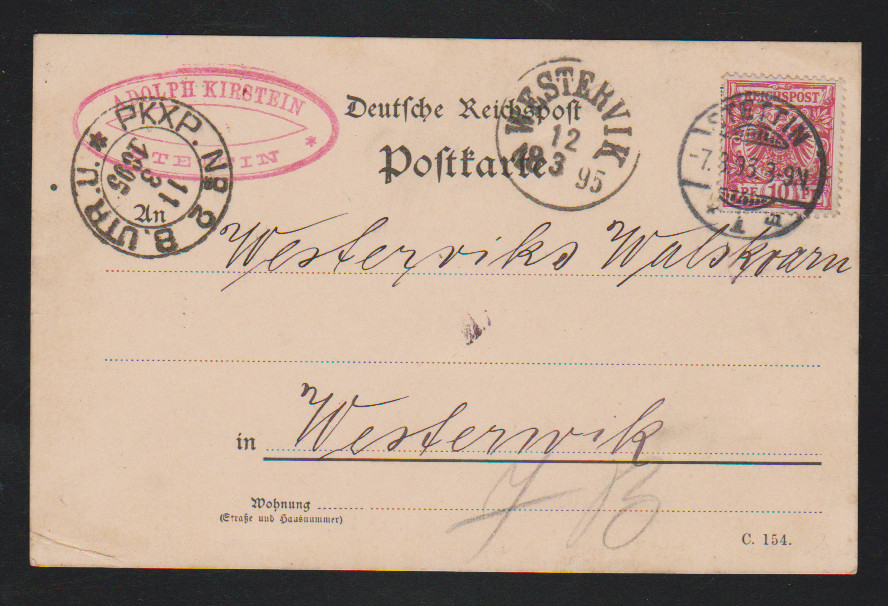 ADOLPH KIRSTEIN
STETTIN
PKXP. No 2 B. UTR. *
11
3
1895
Deutsche Reichspost
Postkarte
WESTERVIK
12
3
95
REICHSPOST
STETTIN
PF 10 PF
An
Westerviks Valskvarn
in Westerwik
Wohnung
(Straße und Hausnummer)
C. 154.